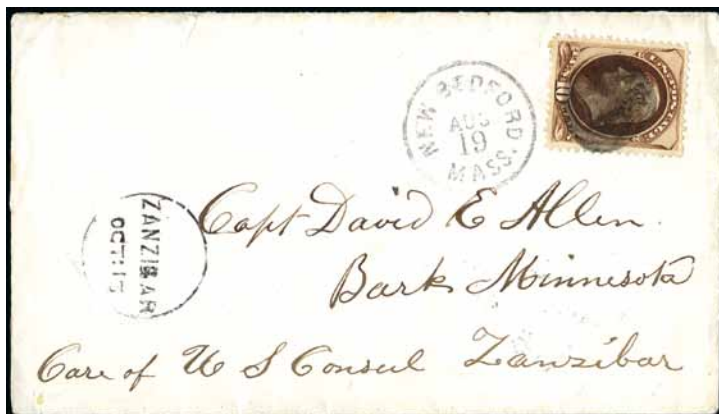 NEW BEDFORD.
AUG
19
MASS.
10
ZANZIBAR
OCT
Capt David E Allen
Bark Minnesota
Care of U S Consul Zanzibar